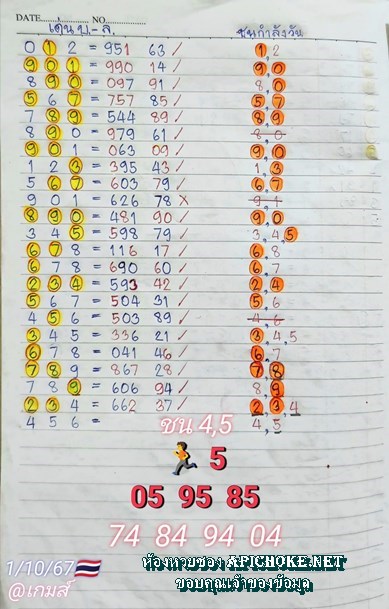 DATE............... NO...............
เด่น บ.-ล. ชนกำลังวัน
0 1 2 = 951 63 / 1,2
9 0 1 = 990 14 / 9,0
8 9 0 = 097 91 / 8,0
5 6 7 = 757 85 / 5,7
7 8 9 = 544 89 / 8,9
8 9 0 = 979 61 / 8,0
9 0 1 = 063 09 / 9,0
1 2 3 = 395 43 / 1,3
5 6 7 = 603 79 / 6,7
9 0 1 = 626 78 x 9,1
8 9 0 = 481 90 / 9,0
3 4 5 = 598 79 / 3,4,5
6 7 8 = 116 17 / 6,8
6 7 8 = 690 60 / 6,7
2 3 4 = 593 42 / 2,4
5 6 7 = 504 31 / 5,6
4 5 6 = 503 89 / 4,6
3 4 5 = 336 21 / 3,4,5
6 7 8 = 041 46 / 6,7
7 8 9 = 867 28 / 7,8
7 8 9 = 606 94 / 8,9
2 3 4 = 662 37 / 2,3,4
4 5 6 = 4,5
ชน 4,5
5
05 95 85
74 84 94 04
1/10/67
@เกมส์
ห้องหวยซอง APICHOKE.NET
ขอบคุณเจ้าของข้อมูล